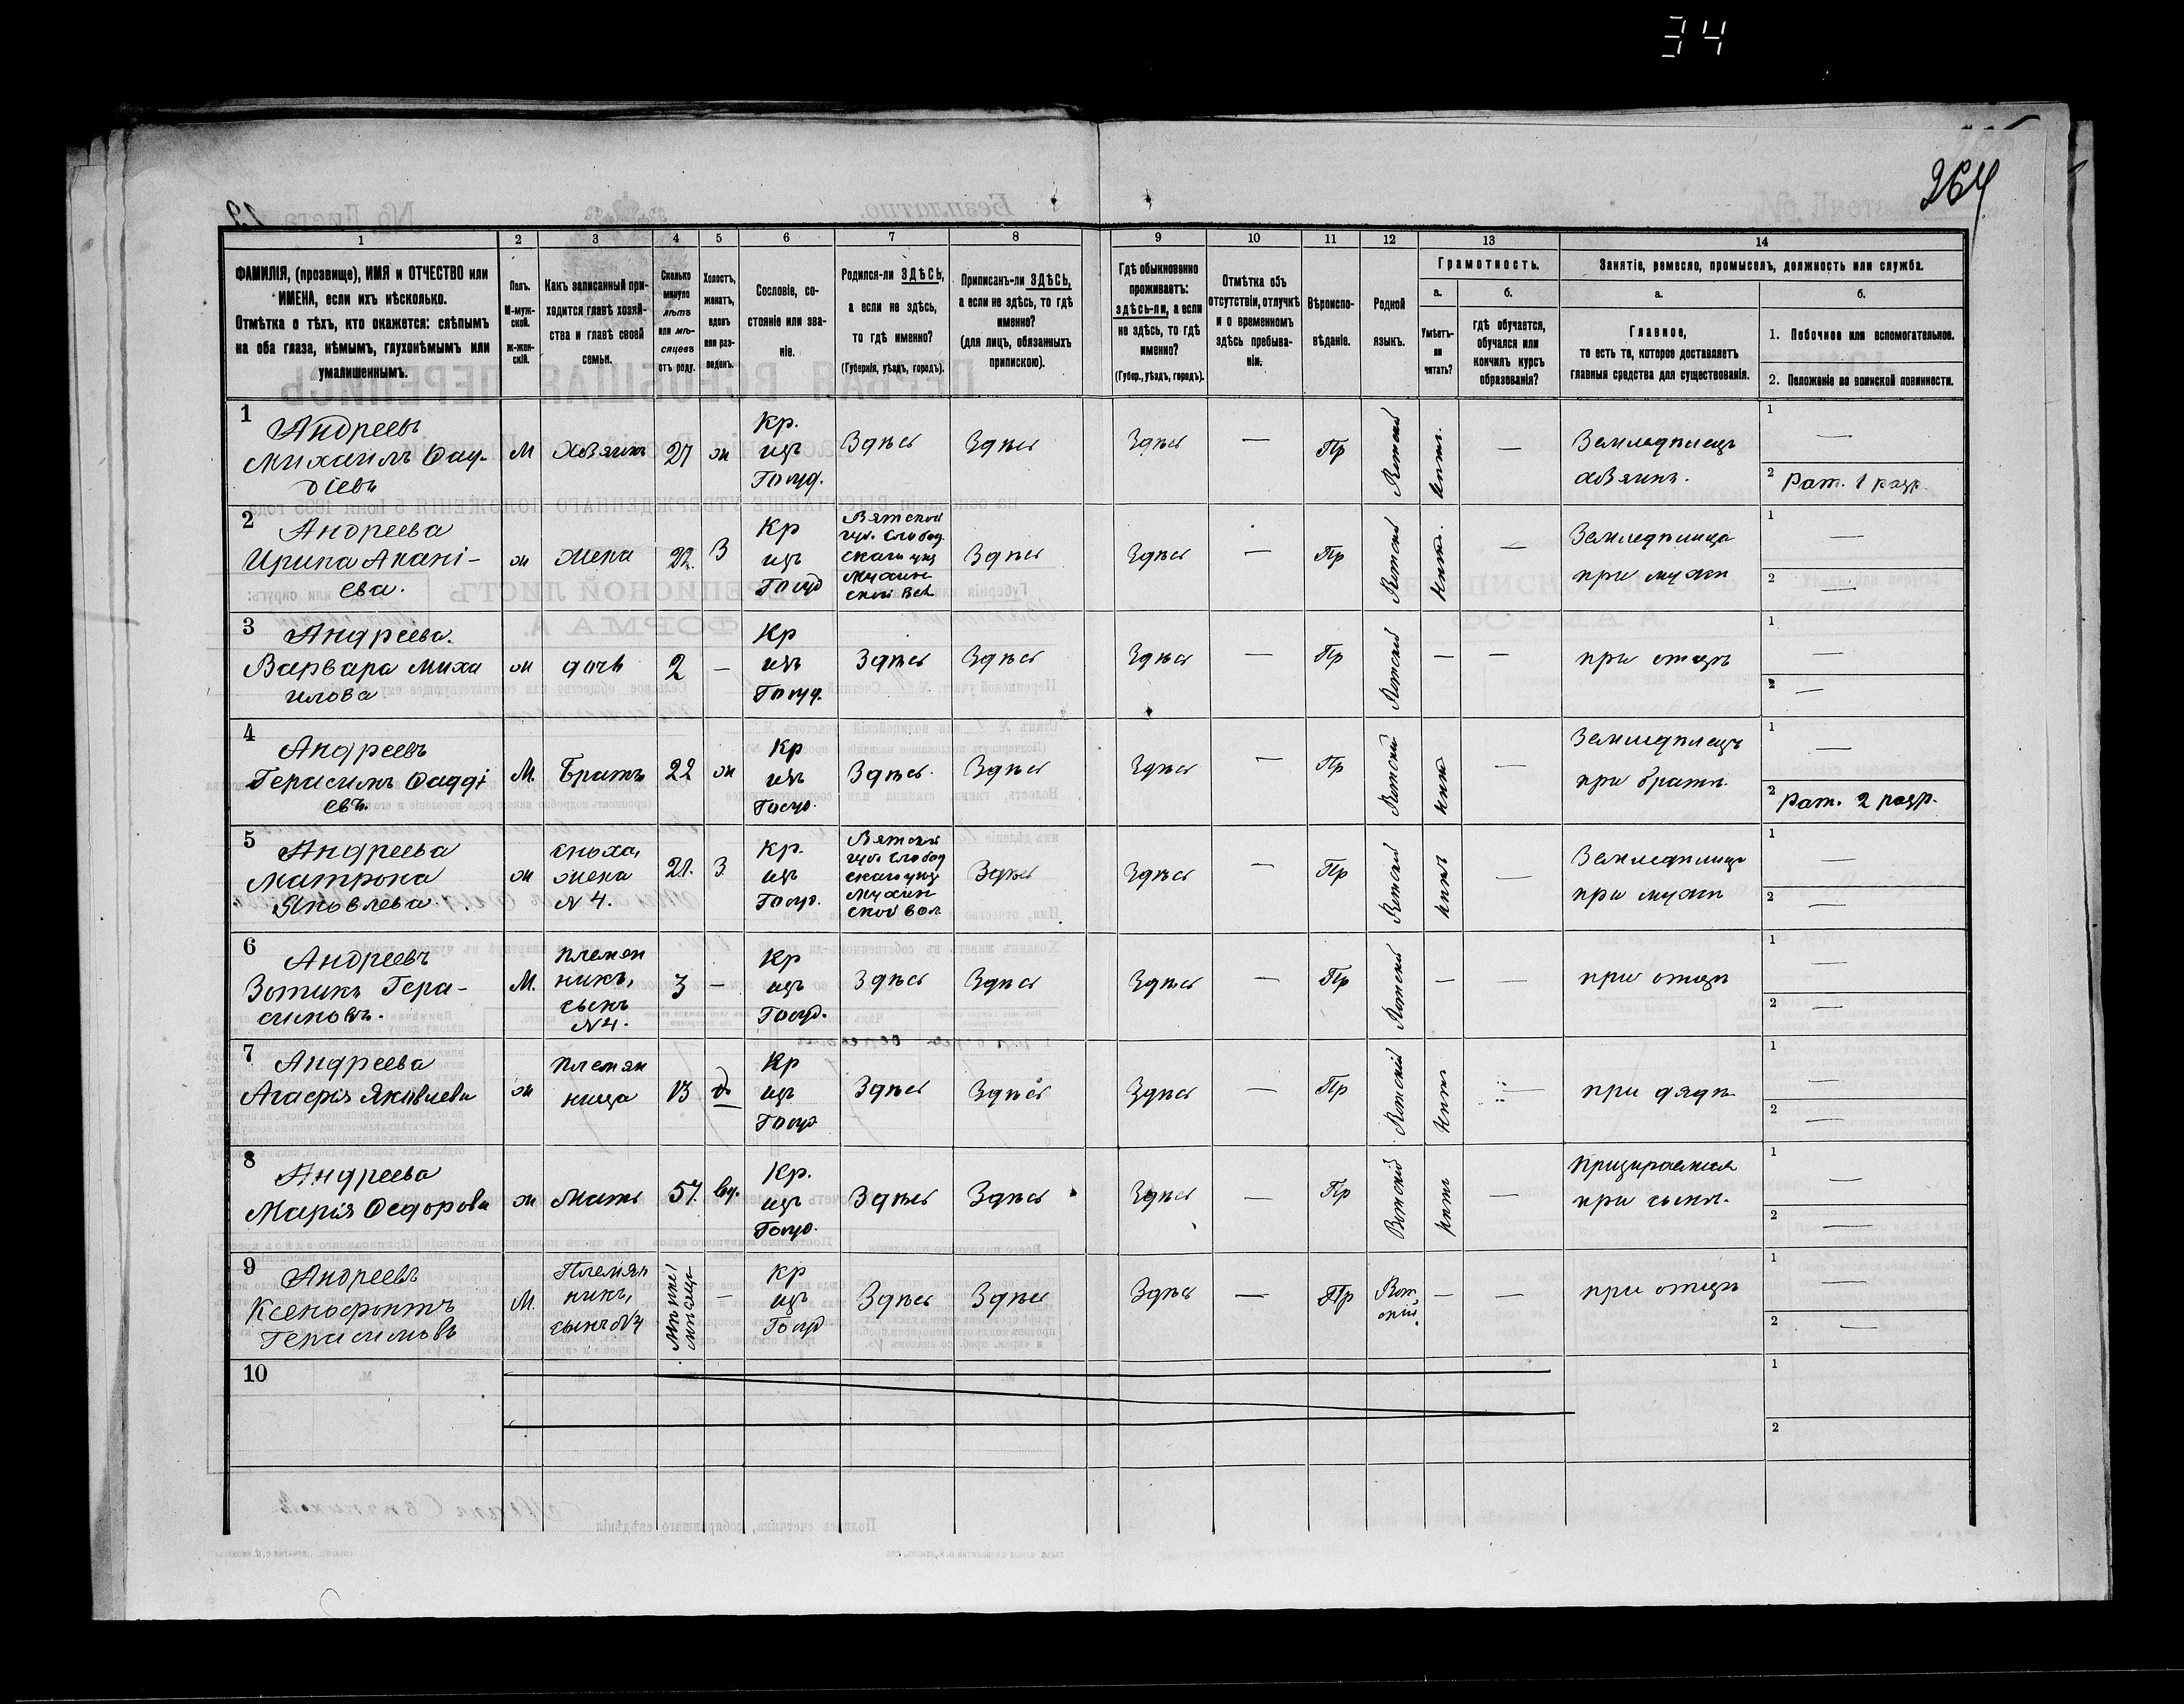 34
264
1 2 3 4 5 6 7 8 9 10 11 12 13 14
ФАМИЛІЯ, (прозвище), ИМЯ и ОТЧЕСТВО или
ИМЕНА, если ихъ нѣсколько.
Отмѣтка о тѣхъ, кто окажется: слѣпымъ
на оба глаза, нѣмымъ, глухонѣмымъ или
умалишеннымъ.
Полъ.
М-муж-
ской.
Ж-жен-
скій.
Какъ записанный при-
ходится главѣ хозяй-
ства и главѣ своей
семьи.
Сколько
минуло
лѣтъ
или мѣ-
сяцевъ
отъ роду.
Холостъ,
женатъ,
вдовъ
или раз-
веденъ.
Сословіе, со-
стояніе или зва-
ніе.
Родился-ли ЗДѢСЬ,
а если не здѣсь,
то гдѣ именно?
(Губернія, уѣздъ, городъ).
Приписанъ-ли ЗДѢСЬ,
а если не здѣсь, то гдѣ
именно?
(для лицъ, обязанныхъ
припискою).
Гдѣ обыкновенно
проживаетъ:
здѣсь-ли, а если
не здѣсь, то гдѣ
именно?
(Губер., уѣздъ, городъ).
Отмѣтка объ
отсутствіи, отлучкѣ
и о временномъ
здѣсь пребыва-
ніи.
Вѣроиспо-
вѣданіе.
Родной
языкъ.
Грамотность.
а.
Умѣетъ-
ли
читать?
б.
гдѣ обучается,
обучался или
кончилъ курсъ
образованія?
Занятіе, ремесло, промыселъ, должность или служба.
а.
Главное,
то есть то, которое доставляетъ
главныя средства для существованія.
б.
1. Побочное или вспомогательное.
2. Положеніе по воинской повинности.
1
Андреевъ
Михаилъ Фад-
діевъ
М Хозяинъ 27 ж
Кр.
изъ
Госуд.
Здѣсь Здѣсь Здѣсь — Пр Вотскій нѣтъ. —
Земледѣлецъ
хозяинъ.
1 —
2 Рат. 1 разр.
2
Андреева
Ирина Анані-
ева.
ж жена 22. З
Кр
изъ
Госуд
Вятской
губ. Слобод
скаго уѣз
Мухин-
ской Вол.
Здѣсь Здѣсь — Пр Вотскій нѣтъ. —
Земледѣлица
при мужѣ
1 —
2 —
3
Андреева.
Варвара Миха
илова
ж дочь 2 —
Кр
изъ
Госуд.
Здѣсь Здѣсь Здѣсь — Пр Вотскій — —
при отцѣ
1 —
2 —
4
Андреевъ
Герасимъ Фадді
евъ.
М. Братъ 22 ж
Кр
изъ
Госуд.
Здѣсь. Здѣсь Здѣсь — Пр Вотскій нѣтъ —
Земледѣлецъ
при братѣ
1 —
2 Рат. 2 разр.
5
Андреева
Матрона
Яковлева.
ж
сноха,
жена
N 4.
21. З
Кр.
изъ
Госуд.
Вятской
губ. Слобод
скаго уѣз
Мухин
ской вол
Здѣсь Здѣсь — Пр Вотскій нѣтъ —
Земледѣлица
при мужѣ
1 —
2 —
6
Андреевъ
Зотикъ Гера-
симовъ.
М.
племен
никъ,
сынъ
N 4.
3 —
Кр
изъ
Госуд.
Здѣсь Здѣсь Здѣсь — Пр Вотскій — —
при отцѣ
1 —
2 —
7
Андреева
Агафія Яковлева
ж
племян
ница
13
Кр
изъ
Госуд
Здѣсь Здѣсь Здѣсь — Пр Вотскій нѣтъ —
при дядѣ
1 —
2 —
8
Андреева
Марія Федорова
ж Мать 57. вд.
Кр.
изъ
Госуд.
Здѣсь Здѣсь Здѣсь — Пр Вотскій нѣтъ —
призираемая
при сынѣ.
1 —
2 —
9
Андреевъ
Ксенофонтъ
Герасимовъ
М.
Племян
никъ,
сынъ N4
—
Кр
изъ
Госуд
Здѣсь Здѣсь Здѣсь — Пр
Вот
скій.
— —
при отцѣ
1 —
2 —
10
1
2